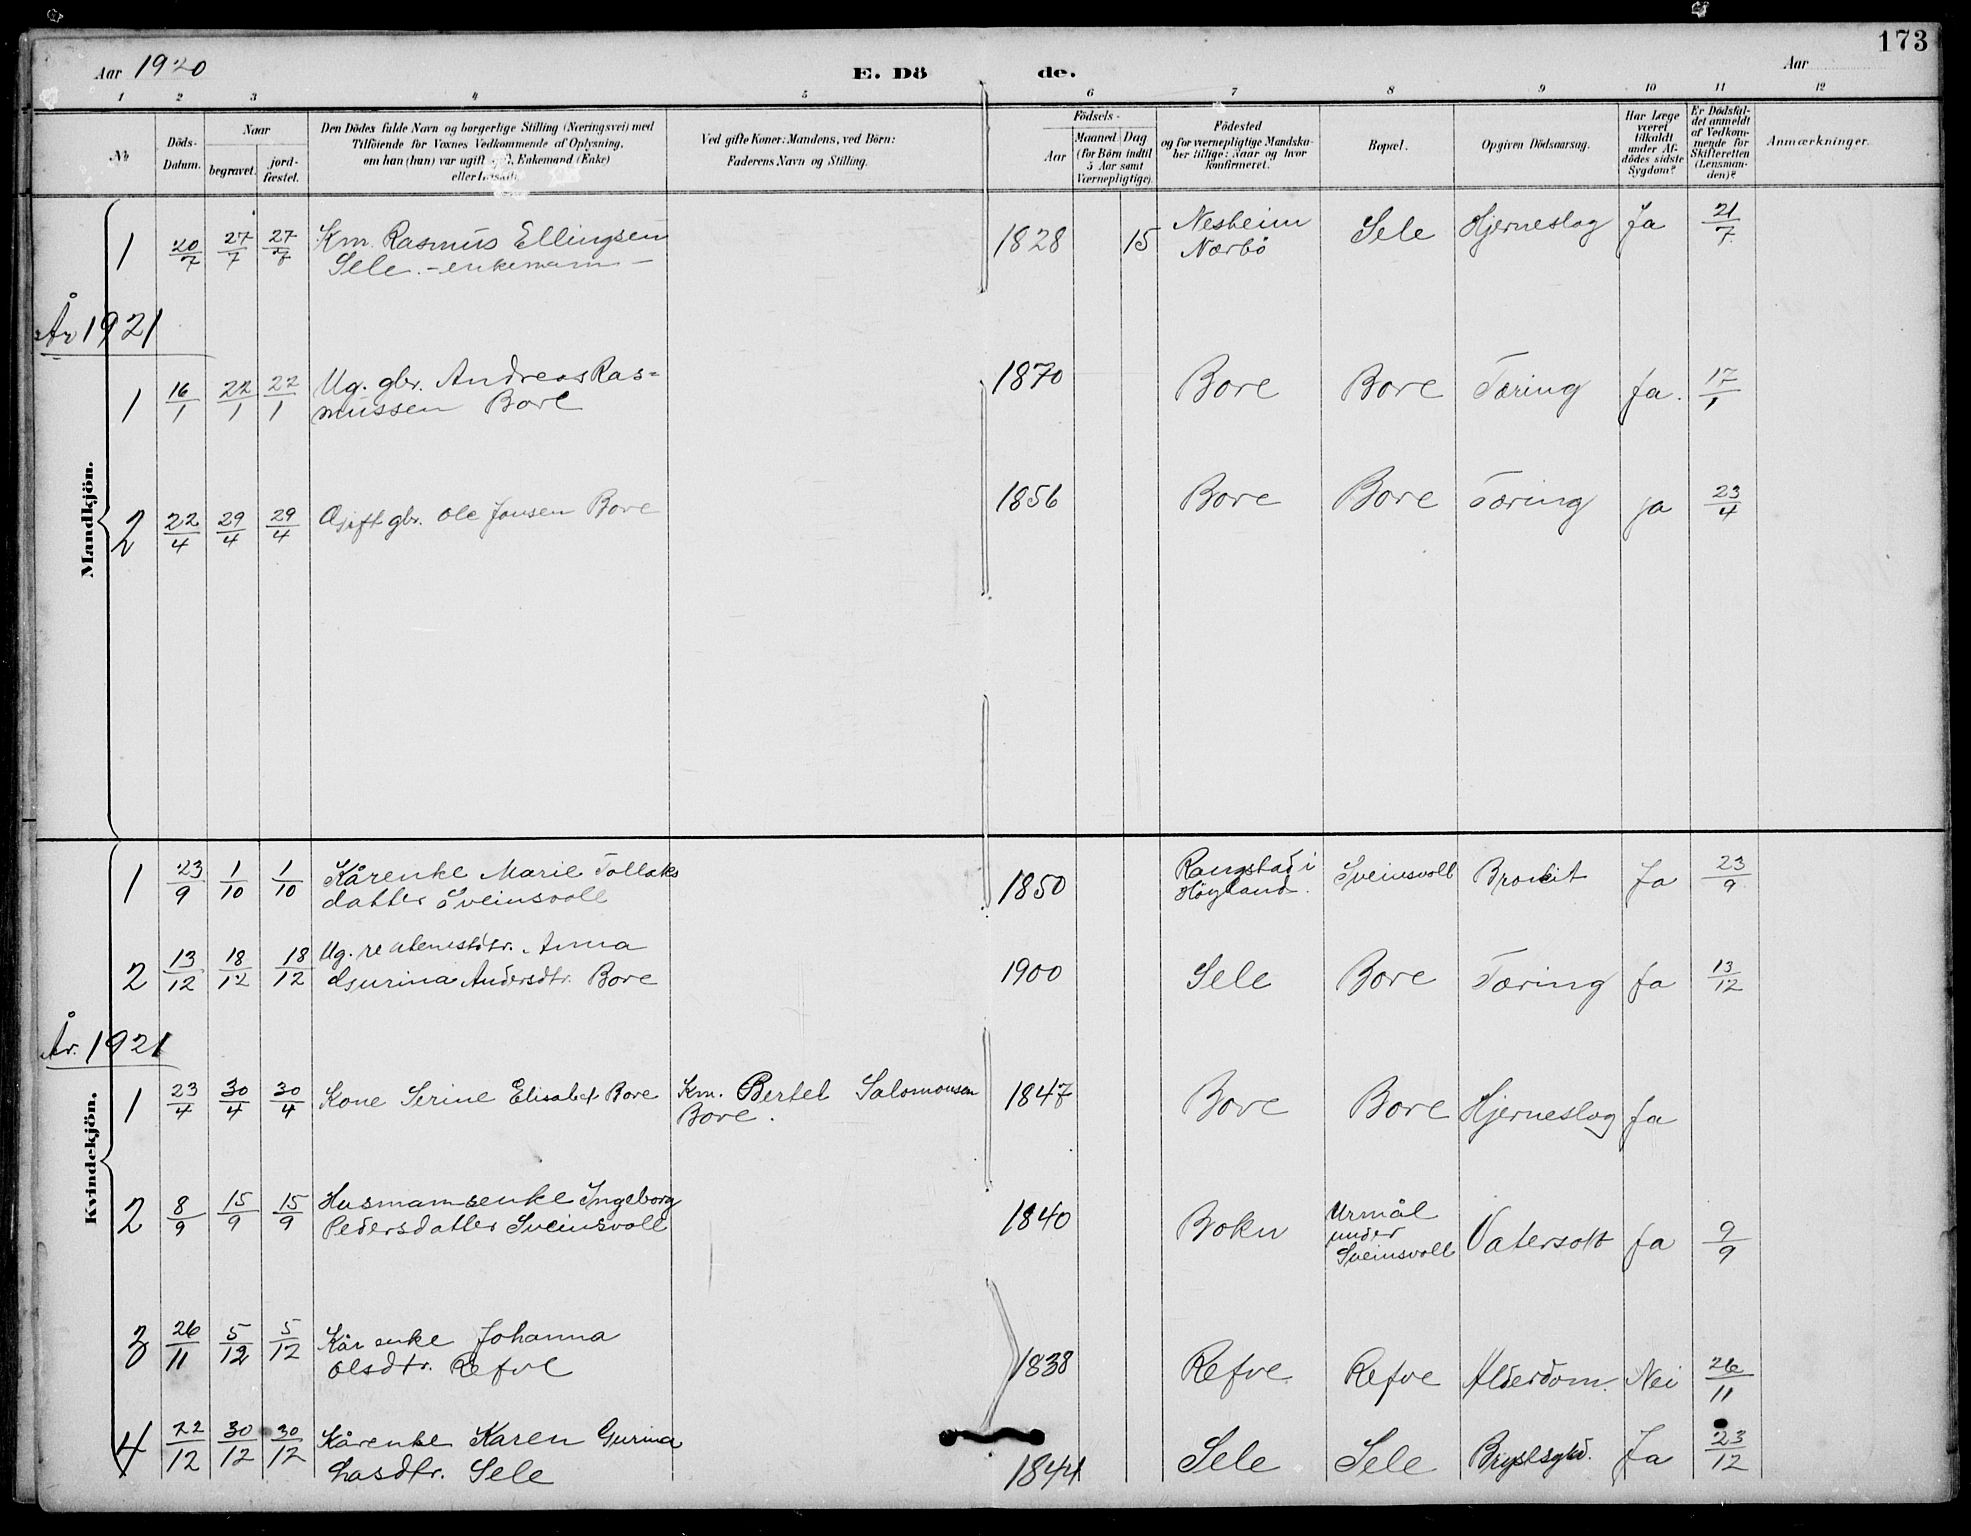 173
Aar 1920 E. Dö de. Aar
1 2 3 4 5 6 7 8 9 10 11 12
No
Döds-Datum.
Naar
begravet.
jord-fæstet.
Den Dödes fulde Navn og borgerlige Stilling (Næringsvei) med
Tilföiende for Voxnes Vedkommende af Oplysning,
om han (hun) var ugift Enkemand (Enke)
eller
Ved gifte Koner: Mandens, ved Börn:
Faderens Navn og Stilling.
Födsels-
Aar
Maaned Dag
(for Börn indtil
5 Aar samt
Værnepligtige).
Födested
og for værnepligtige Mandska-
ber tillige: Naar og hvor
konfirmeret.
Bopæl.
Opgiven Dödsaarsag.
Har Læge
været
tilkaldt
under Af-
dödes sidste
Sygdom?
Er Dödsfal-
det anmeldt
af Vedkom-
mende for
Skifteretten
(Lensman-
den)?
Anmærkninger.
Mandkjön.
1 20/7 27/7 27/7 Km. Rasmus Ellingsen 1828 15 Nesheim Sele Hjerneslag Ja 21/7
Sele. - enkemann - Nærbö
År 1921
1 16/1 22/1 22/1 Ug. gbr. Andreas Ras= 1870 Bore Bore Tæring Ja. 17/1
mussen Bore
2 22/4 29/4 29/4 Gift gbr. Ole Jonsen Bore 1856 Bore Bore Tæring ja 23/4
Kvindekjön.
1 23/9 1/10 1/10 Kårenke Marie Tollaks 1850 Rangstad i Sveinsvoll Bronkit Ja 23/9
datter Sveinsvoll Höyland.
2 13/12 18/12 18/12 Ug. Anna 1900 Sele Bore Tæring Ja 13/12
Gurina Andersdtr. Bore
År. 1921
1 23/4 30/4 30/4 Kone Serine Elisabet Bore Km. Bertel Salomonsen 1847 Bore Bore Hjerneslag Ja
Bore.
2 8/9 15/9 15/9 Husmannsenke Ingeborg 1840 Bokn Urmål Vatersott Ja 9/9
Pedersdatter Sveinsvoll under
Sveinsvoll
3 26/11 5/12 5/12 Kårenke Johanna 1838 Refve Refve Alderdom. Nei 26/11
Olsdtr. Refve
4 22/12 30/12 30/12 Kårenke Karen Gurina 1844 Sele Sele Brystsykd. Ja 23/12
Lasdtr. Sele